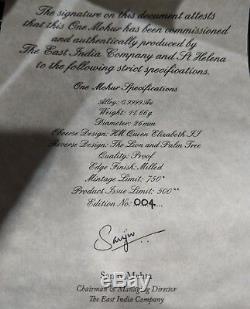 The signature on this document attests
that this One Mohur has been commissioned
and authentically produced by
The East India Company and St Helena
to the following strict specifications.
One Mohur Specifications
Alloy: 0.9999Au
Weight: 11.66g
Diameter: 26mm
Obverse Design: HM Queen Elizabeth II
Reverse Design: The Lion and Palm Tree
Quality: Proof
Edge Finish: Milled
Mintage Limit: 750*
Product Issue Limit: 500**
Edition No: 004...
Sanjiv...
Sanjiv Mehta
Chairman & Managing Director
The East India Company